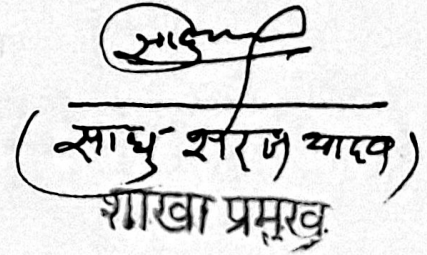 साधु
(साधु शरण यादव)
शाखा प्रमुख